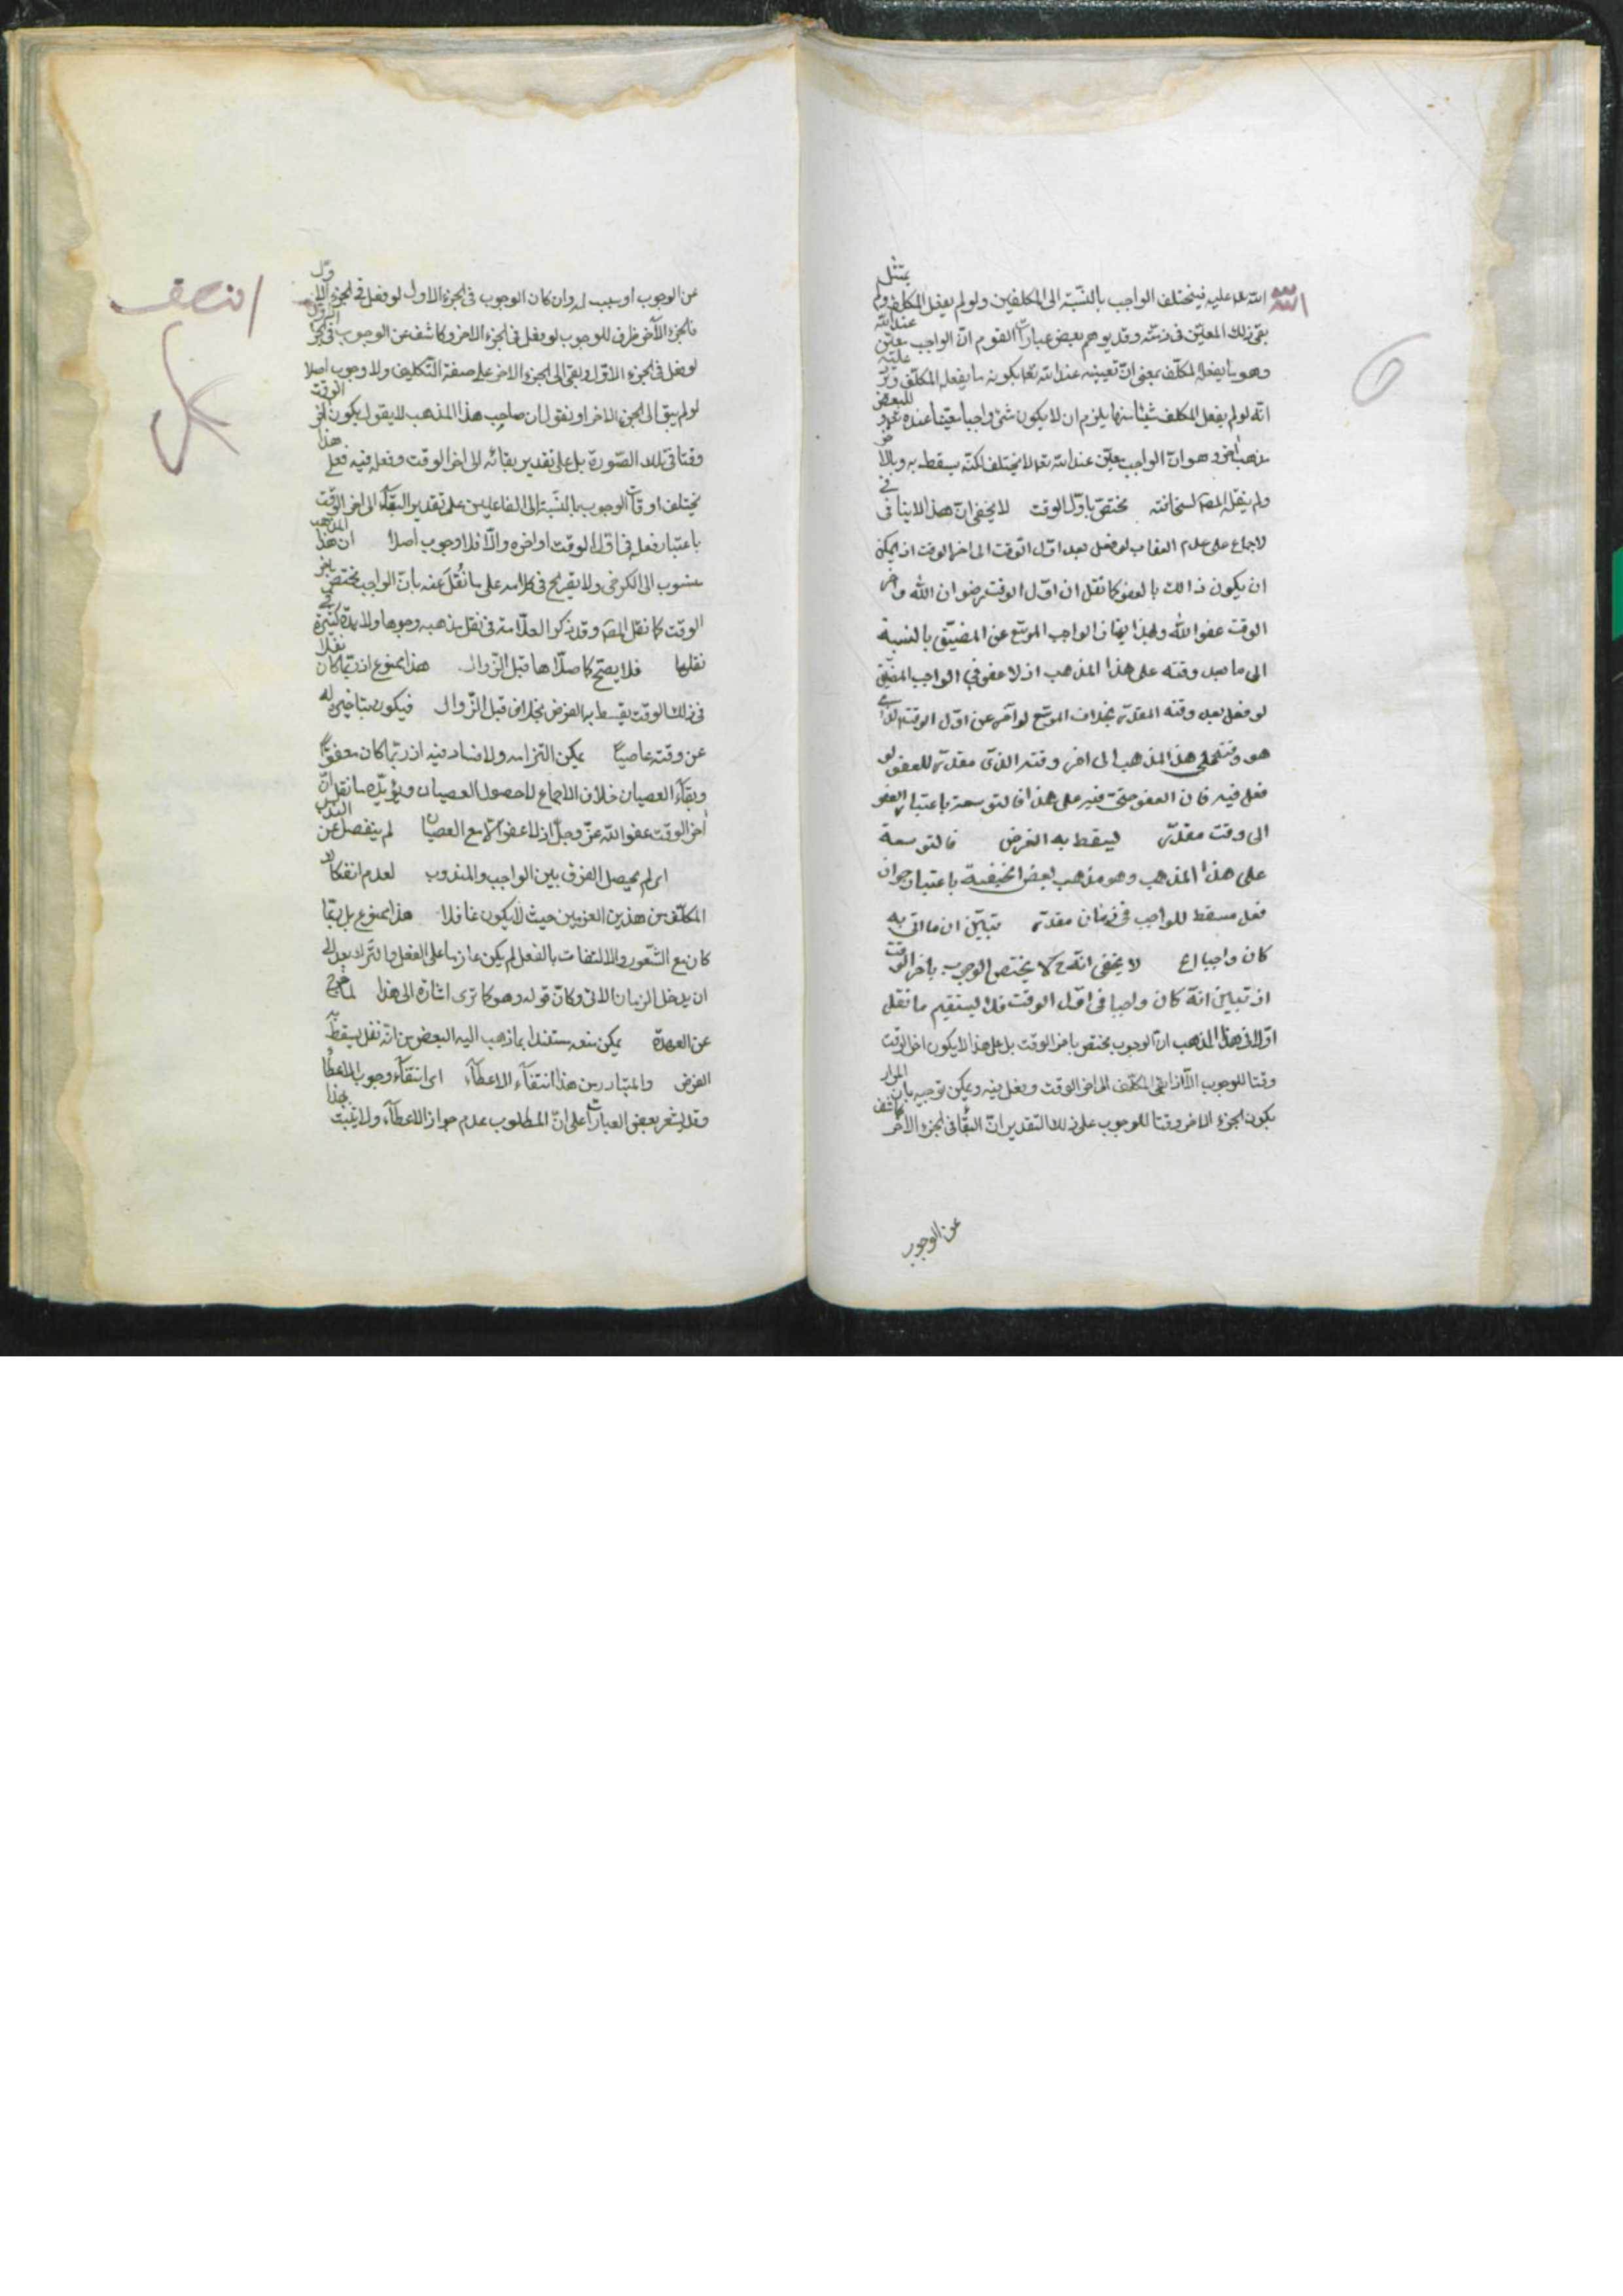 الله تعا عليه فيختلف الواجب بالنسبة الى المكلفين ولو لم يفعل المكلف ولم يمتثل
بقى ذلك المعين فى ذمته وقد يوهم بعض عبارات القوم ان الواجب معين عند الله
وهو ما يفعله المكلف بمعنى ان تعيينه عند الله تعا بكونه ما يفعله المكلف عليه
انه لو لم يفعل المكلف شيئا منها يلزم ان لا يكون شئ واجبا معينا عنده للبعض
مذهب اخر وهو ان الواجب معين عند الله تعا لا يختلف لكنه يسقط به وبالاخر
ولم ينقله المص لسخافته مختص باول الوقت لا يخفى ان هذا لا ينافى
لاجماع على عدم العقاب لو فعل بعد اول الوقت الى اخر الوقت اذ يمكن
ان يكون ذالك بالعفو كما نقل ان اول الوقت رضوان الله واخر
الوقت عفو الله وبهذا يمتاز الواجب الموسع عن المضيق بالنسبة
الى ما بعد وقته على هذا المذهب اذ لا عفو في الواجب المضيق
لو فعل بعد وقته المقدر بخلاف الموسع لو اخر عن اول الوقت الذى
هو وقته على هذا المذهب الى اخر وقته الذى مقدر للعفو لو
فعل فيه فان العفو حتى فيه على هذا فالتوسعة باعتبار العفو
الى وقت مقدر ليسقط به الفرض فالتوسعة
على هذا المذهب وهو مذهب بعض الحنيفية باعتبار جواز
فعل مسقط للواجب فى زمان مقدر تبين ان ما اتى به
كان واجبا اع لا يخفى انه ح كما لا يختص الوجوب باخر الوقت
اذ تبين انه كان واجبا فى اول الوقت فلا يستقيم ما نقله
اولا ان هذا المذهب ان الوجوب مختص باخر الوقت بل على هذا لا يكون اخر الوقت
وقتا للوجوب الا اذا بقى المكلف الى اخر الوقت وفعل فيه ويمكن توجيهه بان المراد
بكون الجزء الاخر وقتا للوجوب على ذلك التقدير ان البقاء فى الجزء الاخر كاشف
عن الوجوب
عن الوجوب او سبب له وان كان الوجوب فى الجزء الاول لو فعل فى الجزء الاول
فالجزء الآخر ظرف للوجوب لو فعل فى الجزء الاخر وكاشف عن الوجوب فى الجزء الاول
لو فعل فى الجزء الاول وبقى الى الجزء الاخر على صفة التكليف ولا وجوب اصلا
لو لم يبق الى الجزء الاخر او نقول ان صاحب هذا المذهب لا يقول بكون اخر الوقت
وقتا فى تلك الصورة بل على تقدير بقائه الى اخر الوقت وفعله فيه فعلى هذا
يختلف اوقات الوجوب بالنسبة الى الفاعلين على تقدير البقاء الى اخر الوقت
باعتبار فعله فى اول الوقت او اخره والا فلا وجوب اصلا ان هذا المذهب
منسوب الى الكرخى ولا يفرح فى كلامه على ما نُقل عنه بان الواجب مختص باخر
الوقت كما نقل المص وقد ذكر العلامة فى نقل مذهبه وجوها ولا فائدة كثيرة فى
نقلها فلا يصح كما صلاها قبل الزوال هذا ممنوع اذ ربما كان نفلا
فى ذلك الوقت يسقط به الفرض بخلاف قبل الزوال فيكون بتاخيره له
عن وقته عاصيا يمكن التزامه ولا فساد فيه اذ ربما كان معفوا
وبقاء العصيان خلاف الاجماع لا حصول العصيان ويؤيده ما نقل ان
اخر الوقت عفو الله عز وجل اذ لا عفو الا مع العصيان لم ينفصل عن الندب
اى لم يحصل الفرق بين الواجب والمندوب لعدم انفكاك
المكلف من هذين العزمين حيث لا يكون غافلا هذا ممنوع بل ربما
كان مع الشعور والالتفات بالفعل لم يكن عازما على الفعل والترك بعد الى
ان يدخل الزمان الآتى وكان قوله وهو كما ترى اشارة الى هذا لما خرج
عن العهدة يمكن منعه مستندا بما ذهب اليه البعض من انه نفل يسقط به
الفرض والمتبادر من هذا انتفاء الاعطاء اى انتفاء وجوب الاعطاء
وقد يشعر بعض العبارات على ان المطلوب عدم جواز الاعطاء ولا يثبت بهذا